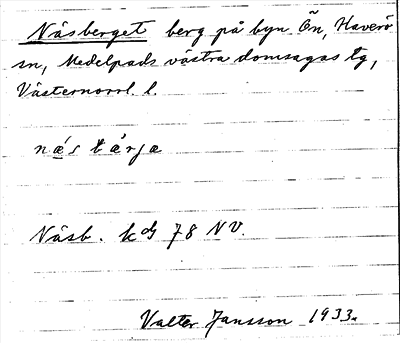 Näsberget berg på byn Ön, Haverö
sn, Medelpads västra domsagas tg,
Västernorrl. l.
näs bärja
Näsb. kG 78 NV.
Valter Jansson 1933.